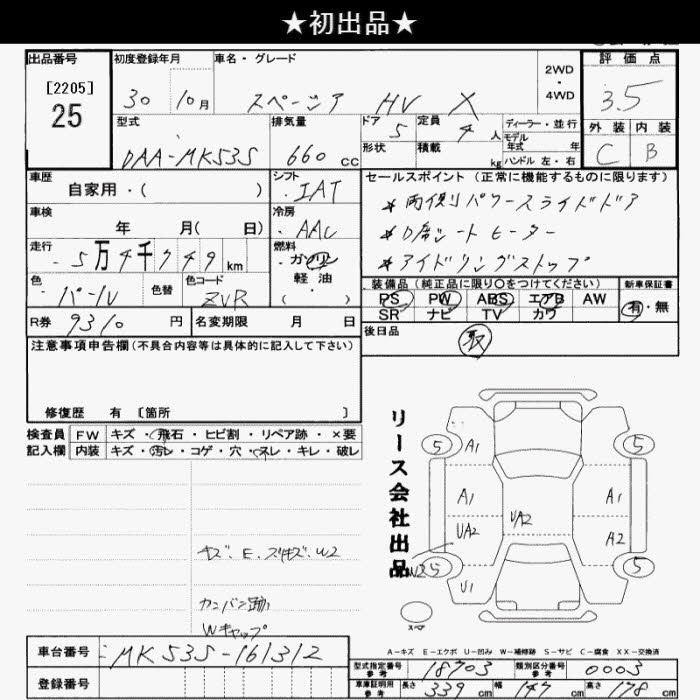 ★初出品★
出品番号 初度登録年月 車名・グレード 2WD・4WD 評価点
[2205]
25
30 10月 スペーシア HV X 3.5
型式 排気量 ドア 定員 ディーラー・並行 外装 内装
DAA-MK53S 660 cc 5 4人 モデル年式 年 C B
形状 積載 kg ハンドル 左・右
車歴 シフト セールスポイント (正常に機能するものに限ります)
自家用・( ) IAT
*両側パワースライドドア
車検 冷房
年 月( 日) AAC *D席シートヒーター
走行 燃料
5万4千749km ガソリン *アイドリングストップ
軽油
( ・ )
色 色替 色コード 装備品 (純正品に限り○をつけてください) 新車保証書
パール ZVR PS PW ABS エアB AW 有・無
SR ナビ TV カワ
R券 9310円 名変期限 月 日 後日品
取
注意事項申告欄 (不具合内容等は具体的に記入して下さい)
修復歴 有 〔箇所 〕
検査員 FW キズ・飛石・ヒビ割・リペア跡・×要
記入欄 内装 キズ・汚レ・コゲ・穴・スレ・キレ・破レ
リース会社出品
5 A1 5
A1 A1
UA2 UA2 A2
5 5
U1
キズ、E、ズリキズ、W2
カンバン跡
Wキャップ
スペア
A-キズ E-エクボ U-凹み W-補修跡 S-サビ C-腐食 XX-交換済
車台番号 MK53S-161312
型式指定番号 参考 18703 類別区分番号 参考 0003
登録番号
車庫証明用 参考 長さ 339 cm 幅 147 cm 高さ 178 cm